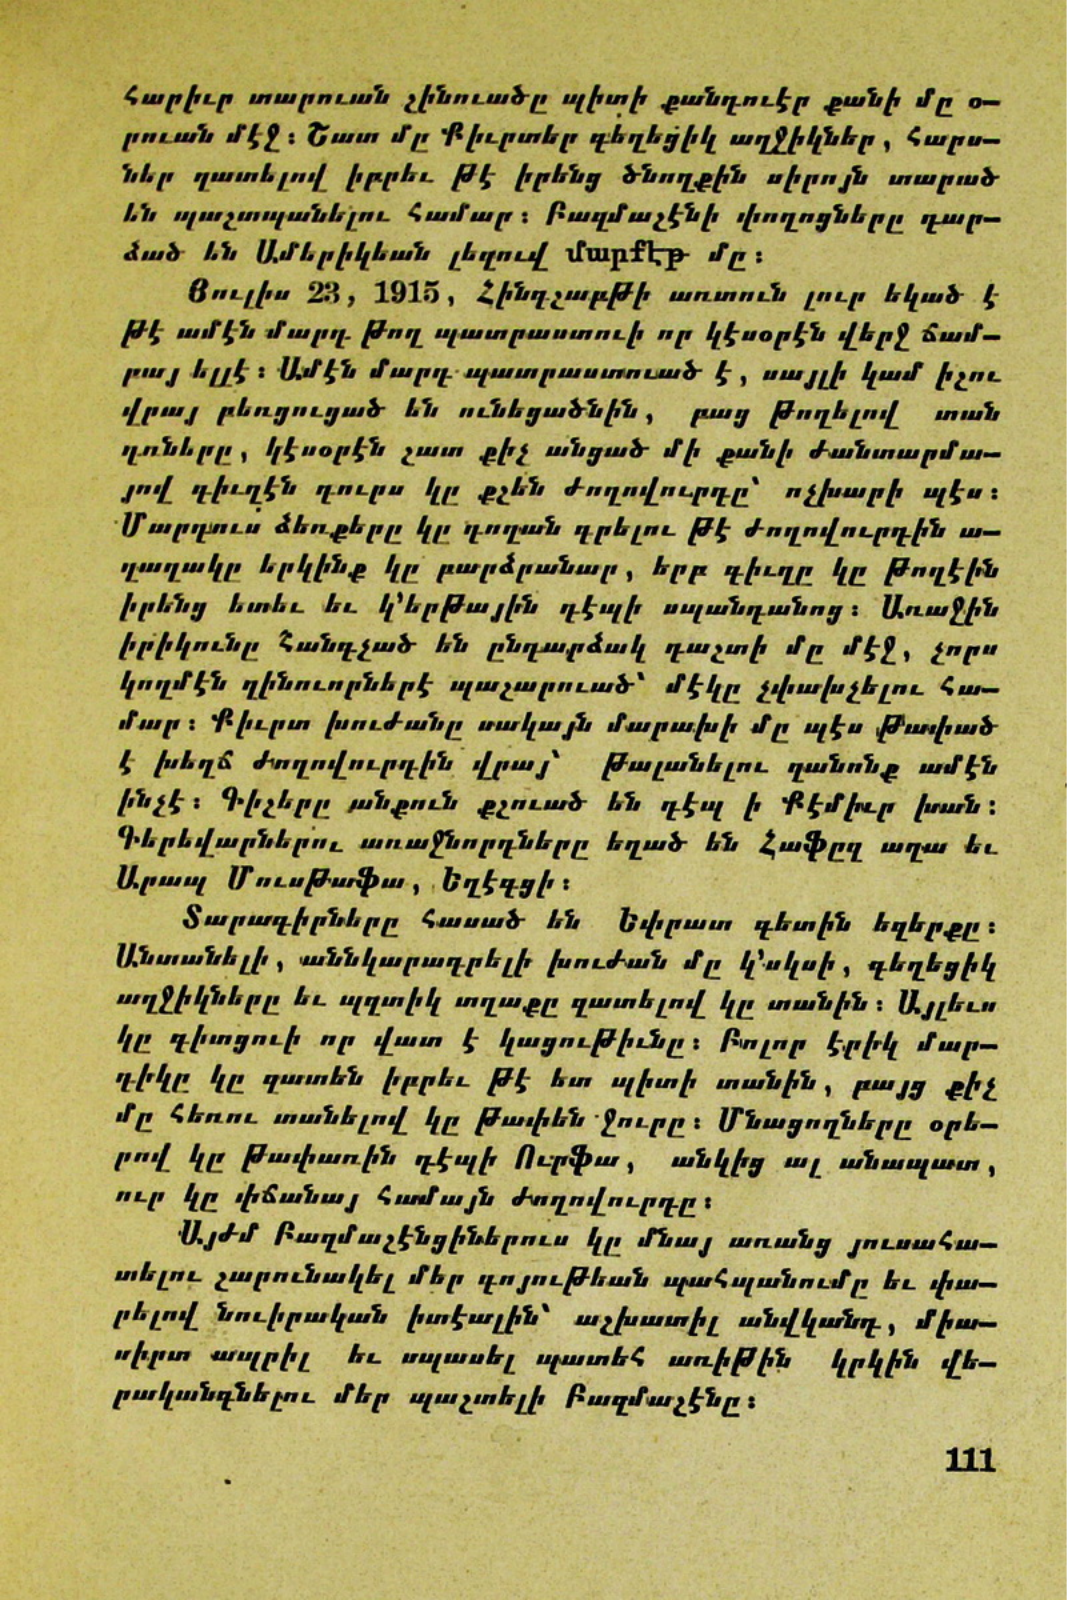 հարիւր տարուան շինուածը պիտի քանդուէր քանի մը օ—
րուան մէջ։ Շատ մը Քիւրտեր գեղեցիկ աղջիկներ, հարս—
ներ զատելով իբրեւ թէ իրենց ծնողքին սիրոյն տարած
են պաշտպանելու համար։ Բազմաշէնի փողոցները դար—
ձած են Ամերիկեան լեզուվ մարքէթ մը։
Յուլիս 23, 1915, Հինգշաբթի առտուն լուր եկած է
թէ ամէն մարդ թող պատրաստուի որ կէսօրէն վերջ ճամ—
բայ ելլէ։ Ամէն մարդ պատրաստուած է, սայլի կամ իշու
վրայ բեռցուցած են ունեցածնին, բաց թողելով տան
դռները, կէսօրէն շատ քիչ անցած մի քանի ժանտարմա—
յով գիւղէն դուրս կը քշեն ժողովուրդը՝ ոչխարի պէս։
Մարդուս ձեռքերը կը դողան գրելու թէ ժողովուրդին ա—
ղաղակը երկինք կը բարձրանար, երբ գիւղը կը թողէին
իրենց ետեւ եւ կ՚երթային դէպի սպանդանոց։ Առաջին
իրիկունը հանգչած են ընդարձակ դաշտի մը մէջ, չորս
կողմէն զինուորներէ պաշարուած՝ մէկը չփախչելու հա—
մար։ Քիւրտ խուժանը սակայն մարախի մը պէս թափած
է խեղճ ժողովուրդին վրայ՝ թալանելու զանոնք ամէն
ինչէ։ Գիշերը անքուն քշուած են դէպ ի Քէմիւր խան։
Գերեվարներու առաջնորդները եղած են Հաֆըզ աղա եւ
Արապ Մուսթաֆա, Եղէգցի։
Տարագիրները հասած են Եփրատ գետին եզերքը։
Անտանելի, աննկարագրելի խուժան մը կ՚սկսի, գեղեցիկ
աղջիկները եւ պզտիկ տղաքը զատելով կը տանին։ Այլեւս
կը գիտցուի որ վատ է կացութիւնը։ Բոլոր էրիկ մար—
դիկը կը զատեն իբրեւ թէ ետ պիտի տանին, բայց քիչ
մը հեռու տանելով կը թափեն ջուրը։ Մնացողները օրե—
րով կը թափառին դէպի Ուրֆա, անկից ալ անապատ,
ուր կը փճանայ համայն ժողովուրդը։
Այժմ Բազմաշէնցիներուս կը մնայ առանց յուսահա—
տելու շարունակել մեր գոյութեան պահպանումը եւ փա—
րելով նուիրական իտէալին՝ աշխատիլ անվկանդ, միա—
սիրտ ապրիլ եւ սպասել պատեհ առիթին կրկին վե—
րականգնելու մեր պաշտելի Բազմաշէնը։
111